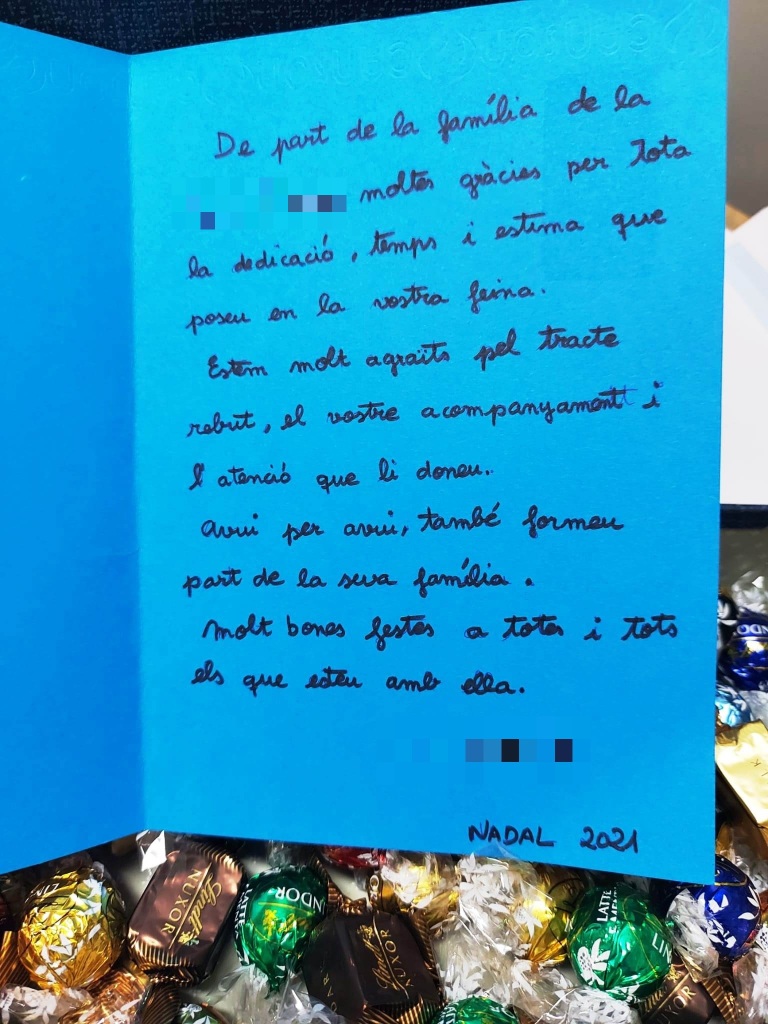 De part de la família de la
moltes gràcies per tota
la dedicació, temps i estima que
poseu en la vostra feina.
Estem molt agraïts pel tracte
rebut, el vostre acompanyament i
l'atenció que li doneu.
Avui per avui, també formeu
part de la seva família.
Molt bones festes a totes i tots
els que esteu amb ella.
NADAL 2021
Lindt
NUXOR
NDOR
LATTE
Lindt
NUXOR
LATTE
LIN
NDO